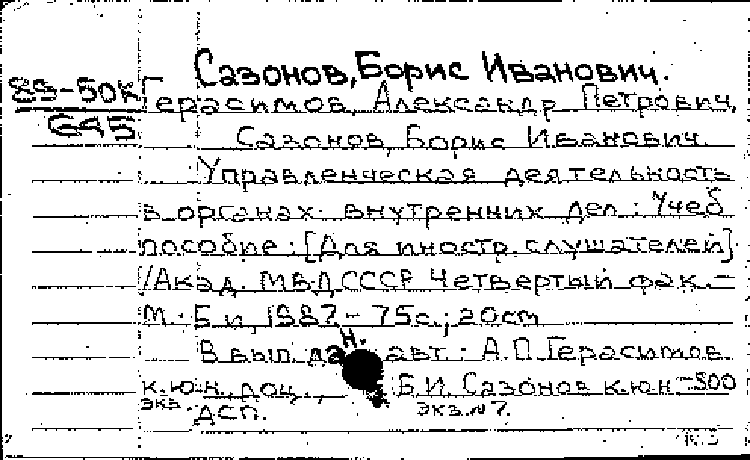 Сазонов, Борис Иванович.
89-50к Герасимов, Александр Петрович,
645 Сазонов, Борис Иванович.
Управленческая деятельность
в органах внутренних дел: Учеб
пособие: [Для иностр. слушателей]
//Акад. МВД СССР Четвертый фак. -
М.: Б и, 1987 - 75с.; 20см
В вып. дан. авт.: А.П. Герасимов
к.ю.н. доц., Б.И. Сазонов к.ю.н - 500
экз. ДСП. экз. №7.